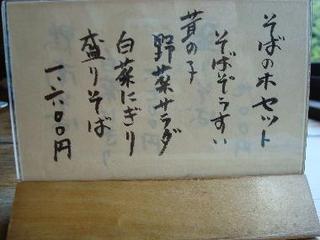 そばの木セット
そばぞうすい
茸の子
野菜サラダ
白菜にぎり
盛りそば
一、六〇〇円